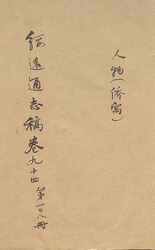 人物(侨寓)
绥远通志稿卷九十四 第一〇八册